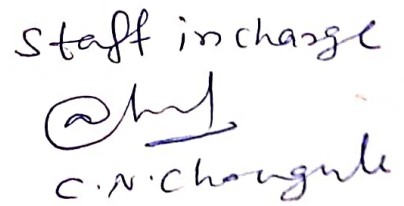 Staff incharge
C.N. Chougule